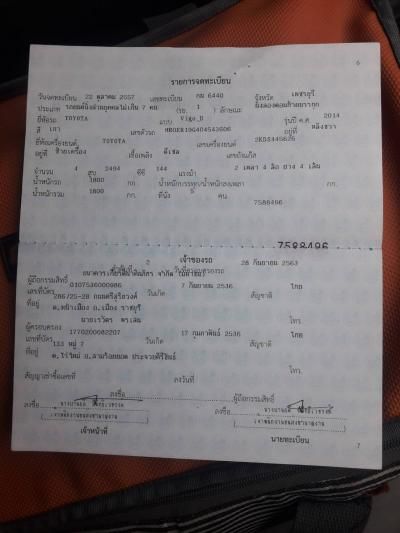 6
รายการจดทะเบียน
วันจดทะเบียน 22 ตุลาคม 2557 เลขทะเบียน กม 6440 จังหวัด เพชรบุรี
ประเภท รถยนต์นั่งส่วนบุคคลไม่เกิน 7 คน (รย. 1 ) ลักษณะ
ยี่ห้อรถ TOYOTA แบบ Vigo_D รุ่นปี ค.ศ. 2014
สี เทา เลขตัวรถ อยู่ที่
ยี่ห้อเครื่องยนต์ TOYOTA เลขเครื่องยนต์
อยู่ที่ ซ้ายเครื่อง เชื้อเพลิง ดีเซล เลขถังแก๊ส
จำนวน 4 สูบ 2494 ซีซี 144 แรงม้า 2 เพลา 4 ล้อ ยาง 4 เส้น
น้ำหนักรถ 1800 กก. น้ำหนักบรรทุก/น้ำหนักลงเพลา กก.
น้ำหนักรวม 1800 กก. ที่นั่ง 5 คน
7588496
7588496
เจ้าของรถ
2 28 กันยายน 2563
ผู้ถือกรรมสิทธิ์
เลขที่บัตร 0107536000986 วันเกิด 7 กันยายน 2536 สัญชาติ ไทย
ที่อยู่ 286/25-28
ต.หน้าเมือง อ.เมือง ราชบุรี โทร.
ผู้ครอบครอง
เลขที่บัตร 1770200082207 วันเกิด 17 กุมภาพันธ์ 2536 สัญชาติ ไทย
ที่อยู่ 133 หมู่ 7
ต.ไร่ใหม่ อ.สามร้อยยอด ประจวบคีรีขันธ์ โทร.
สัญญาเช่าซื้อเลขที่ ลงวันที่
ลงชื่อ ผู้ถือกรรมสิทธิ์
ลงชื่อ ลงชื่อ
เจ้าหน้าที่ นายทะเบียน
7